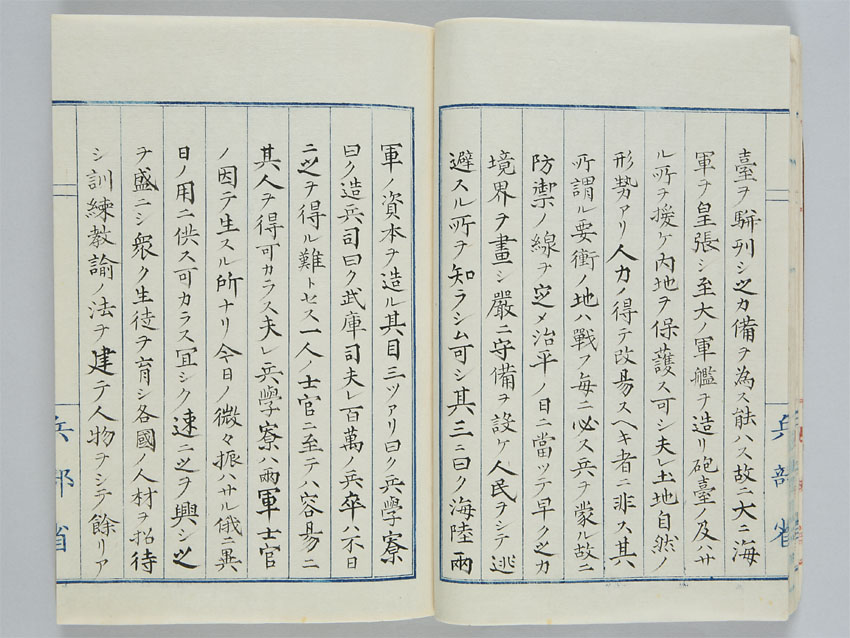 臺ヲ駢列シ之カ備ヲ為ス能ハス故ニ大ニ海
軍ヲ皇張シ至大ノ軍艦ヲ造リ砲臺ノ及ハサ
ル所ヲ援ケ内地ヲ保護ス可シ夫レ土地自然ノ
形勢アリ人力ノ得テ改易スヘキ者ニ非ス其
所謂ル要衝ノ地ハ戰フ毎ニ必ス兵ヲ蒙ル故ニ
防禦ノ線ヲ定メ治平ノ日ニ當ツテ早ク之カ
境界ヲ畫シ嚴ニ守備ヲ設ケ人民ヲシテ逃
避スル所ヲ知ラシム可シ其三ニ曰ク海陸兩
兵部省
軍ノ資本ヲ造ル其目三ツアリ曰ク兵學寮
曰ク造兵司曰ク武庫司夫レ百萬ノ兵卒ハ不日
ニ之ヲ得ル難トセス一人ノ士官ニ至テハ容易ニ
其人ヲ得可カラス夫レ兵學寮ハ兩軍士官
ノ因テ生スル所ナリ今日ノ微々振ハサル俄ニ異
日ノ用ニ供ス可カラス宜シク速ニ之ヲ興シ之
ヲ盛ニシ衆ク生徒ヲ育シ各國ノ人材ヲ招待
シ訓練教諭ノ法ヲ建テ人物ヲシテ餘リア
兵部省